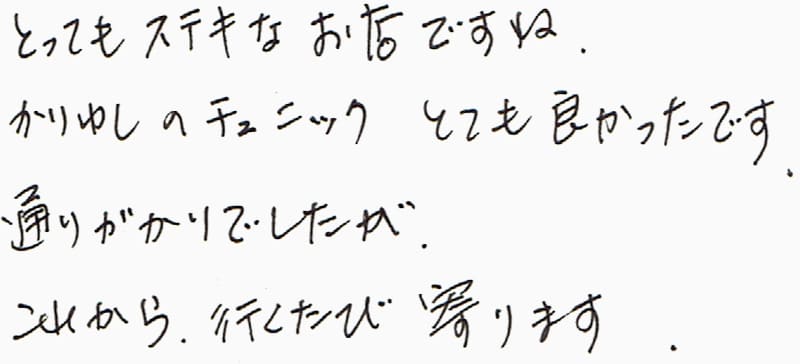 とってもステキなお店ですね.
かりゆしのチュニック とても良かったです.
通りがかりでしたが.
これから.行くたび寄ります.